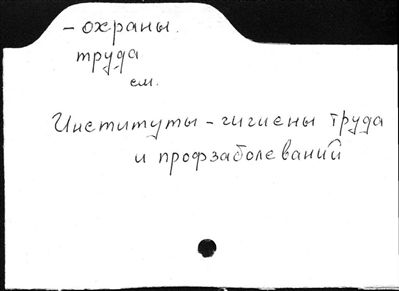 - охраны.
труда
см.
Институты - гигиены труда
и профзаболеваний